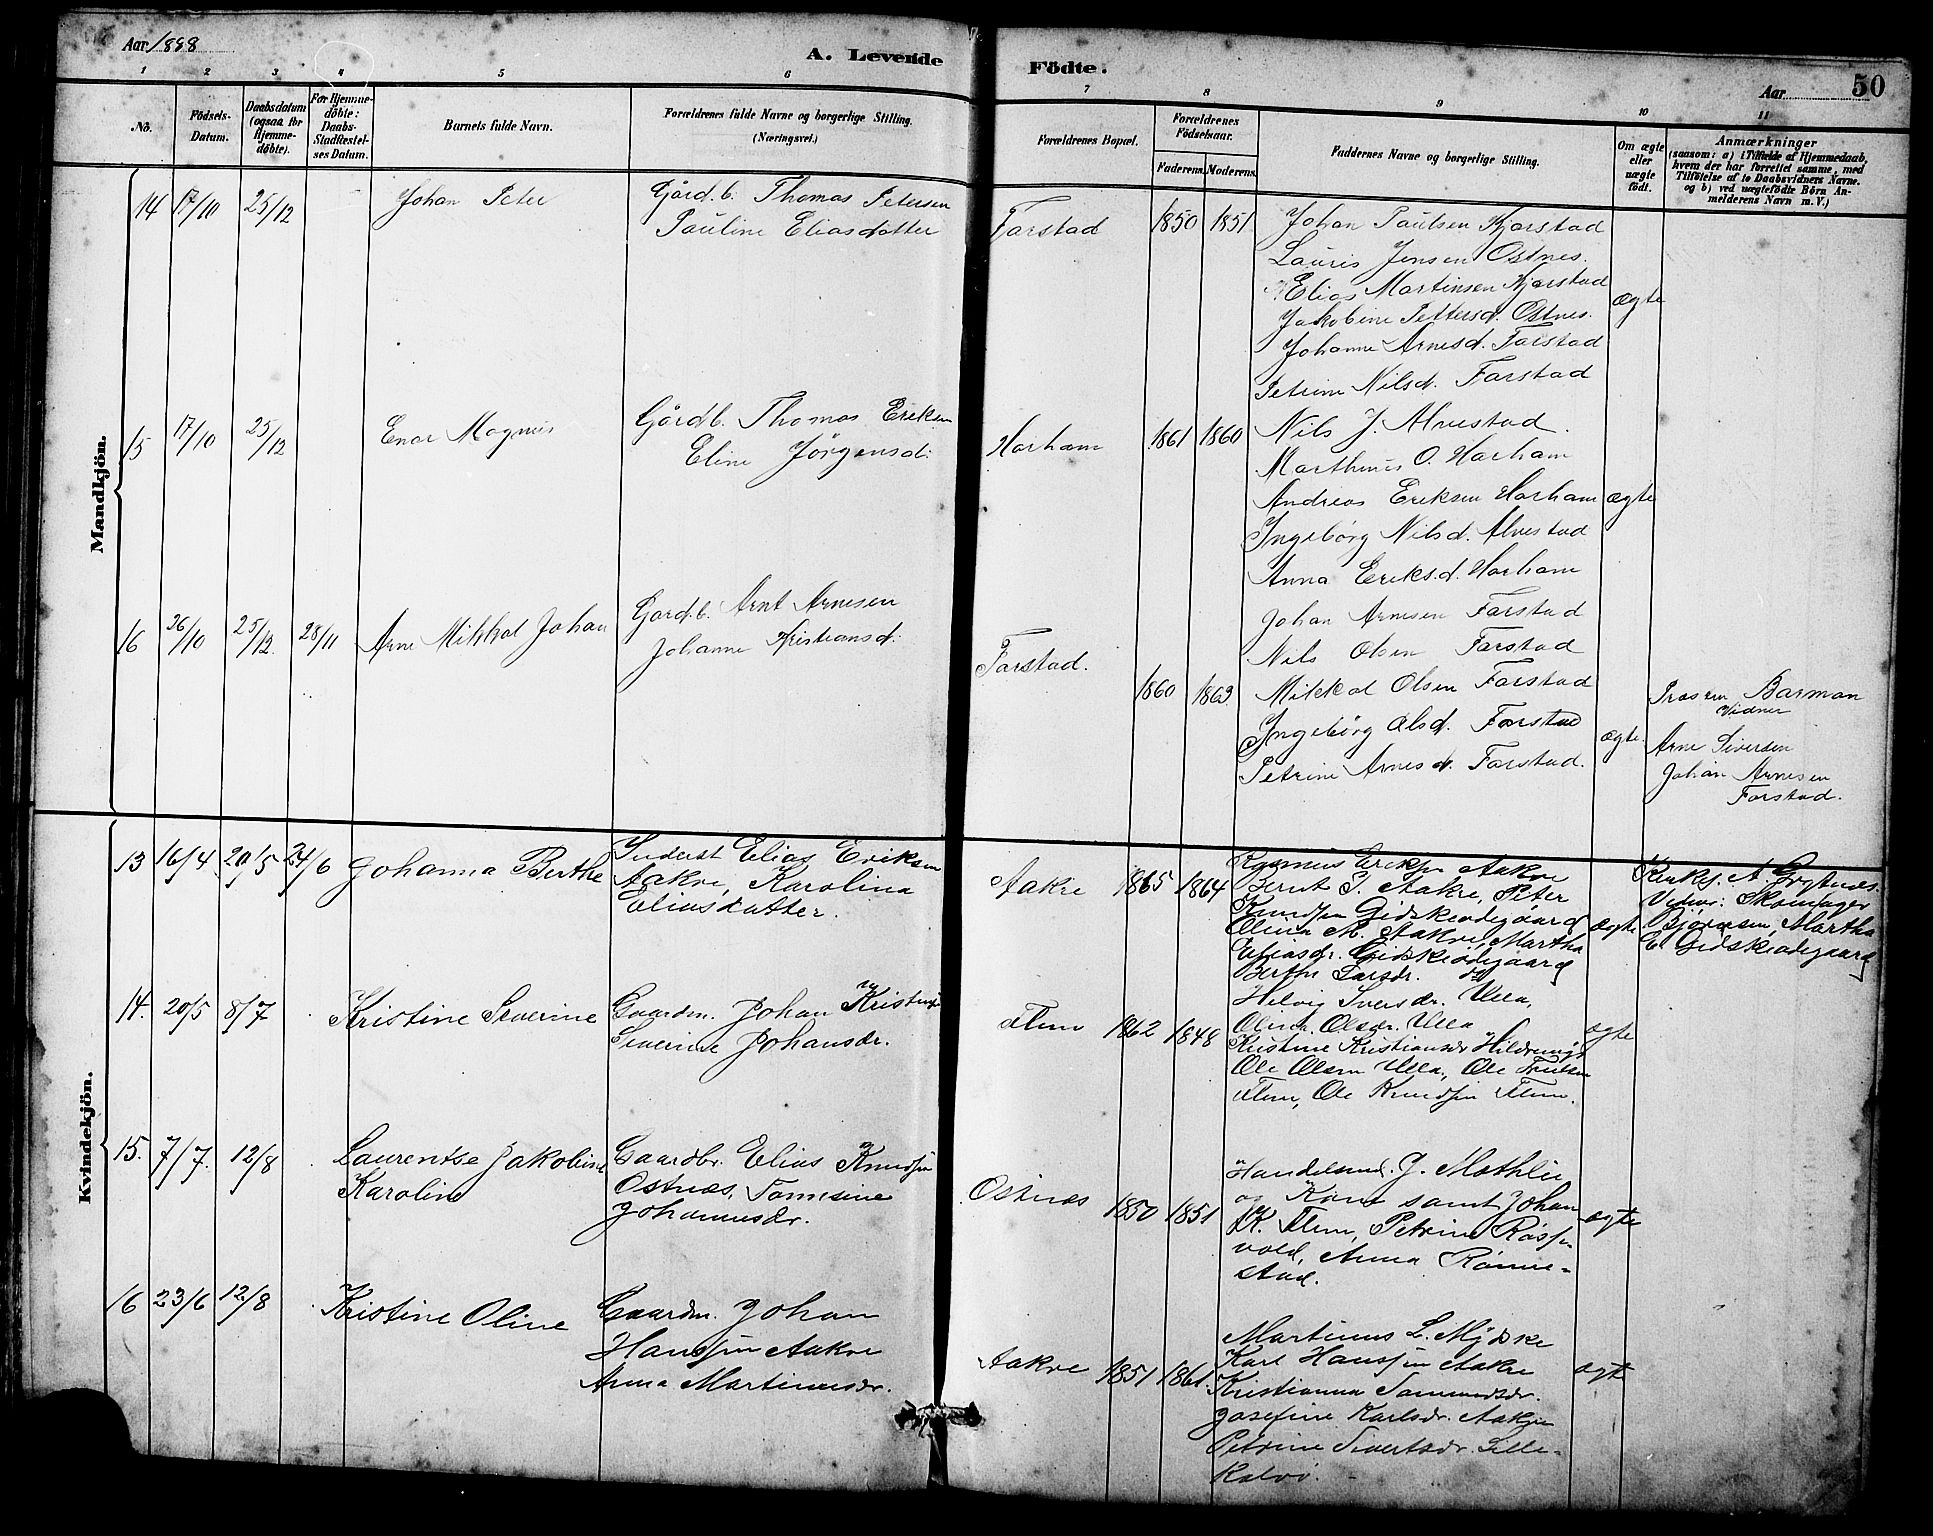 Aar 1898
A. Levende Födte.
Aar
50
1 2 3 4 5 6 7 8 9 10 11
No.
Födsels-
Datum.
Daabsdatum
(ogsaa for
Hjemme-
döbte).
For Hjemme-
döbte:
Daabs-
Stadfæstel-
ses Datum.
Barnets fulde Navn.
Forældrenes fulde Navne og borgerlige Stilling.
(Næringsvei.)
Forældrenes Bopæl.
Forældrenes
Födselsaar.
Faderens. Moderens.
Faddernes Navne og borgerlige Stilling.
Om ægte
eller
uægte
födt.
Anmærkninger
(saasom: a) i Tilfælde af Hjemmedaab,
hvem der har forrettet samme, med
Tilföielse af to Daabsvidners Navne.
og b) ved uægtefödte Börn An-
melderens Navn m. V.)
Mandkjön.
14 17/10 25/12
Johan Peter
Gårdb. Thomas Petersen
Pauline Eliasdatter
Farstad
1850 1851
Johan Paulsen Kjerstad
Lauris Jensen Ostnes.
Elias Martinsen Kjerstad
Jakobine Pettersd. Ostnes.
Johanne Arnesd. Farstad
Petrine Nilsd. Farstad
ægte
15 17/10 25/12
Enar Magnus
Gårdb. Thomas Eriksen
Eline Jørgensd.
Harham
1861 1860
Nils J. Alvestad.
Marthinus O. Harham
Andreas Eriksen Harham
Ingebørg Nilsd. Alvestad
Anna Eriksd. Harham
ægte
16 26/10 25/12. 28/11
Arne Mikkal Johan
Gårdb. Arnt Arnesen
Johanne Kristiansd.
Farstad.
1860 1863
Johan Arnesen Farstad
Nils Olsen Farstad
Mikkal Olsen Farstad
Ingebørg Olsd. Farstad
Petrine Arnesd. Farstad.
ægte.
Præsten Barman
Vidner
Arne Siversen
Johan Arnesen
Farstad.
Kvindekjön.
13 16/4 20/5 24/6
Johanna Berthe
Inderst Elias Eriksen
Aakre, Karolina
Eliasdatter.
Aakre
1865 1864
Rasmus Eriksen Aakre
Bernt P. Aakre, Peter
Knudsen Gidskeødegaard
Olina M. Aakre, Martha
Eliasdr. Gidskeødegaard
Berthe Larsdr. ds
ægte
Kirks. A Grytnes.
Vidner: Skomager
Bjørnsen, Martha
E. Gidskeødegaard
14. 20/5 8/7
Kristine Severine
Gaardm. Johan Kristensen
Severine Johansdr.
Flem
1862 1848
Helvig Iversdr. Ulla,
Olina Olsdr. Ulla
Kristine Kristiansdr Hildrening
Ole Olsen Ulla, Ole Trulsen
Flem, Ole Knudsen Flem.
ægte
15. 7/7. 12/8
Laurentse Jakobine
Karoline
Gaardbr. Elias Knudsen
Ostnæs, Tomesine
Johannesdr.
Ostnæs
1850 1851
Handelsmd. J. Mathlie
og Kone samt Johan
K. Flem, Petrine Røssen
vold, Anna Rønne-
stad.
ægte
16 23/6 12/8
Kristine Oline
Gaardm. Johan
Hansen Aakre
Anna Martinusdr.
Aakre
1851 1861.
Martinus L. Myske
Karl Hansen Aakre
Kristianna Sammundsdr.
Josefine Karlsdr. Aakre
Petrine Sivertsdr. Lille-
Kalvø.
ægte